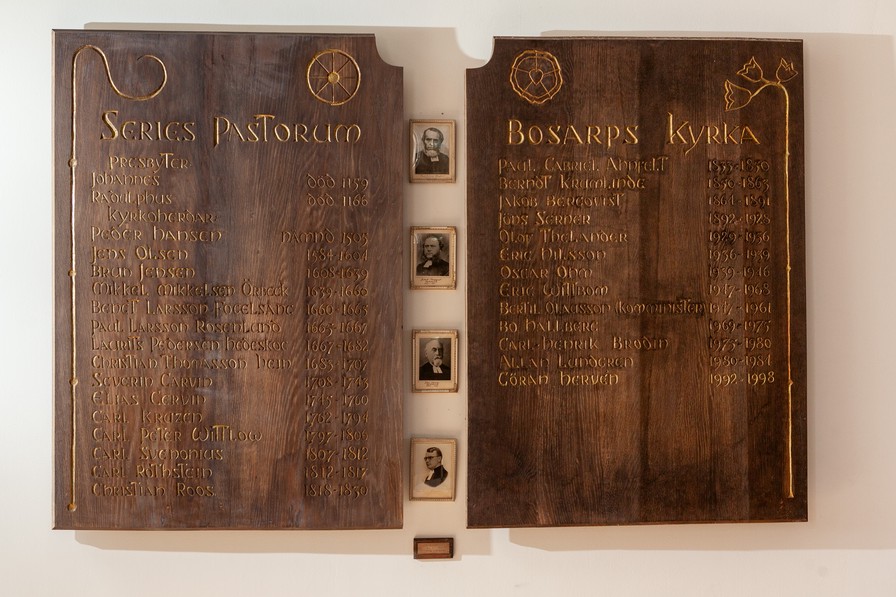 SERIES PASTORUM
PRESBYTER
JOHANNES DÖD 1159
RADULPHUS DÖD 1166
KYRKOHERDAR
PEDER HANSEN NÄMND 1503
JENS OLSEN 1584-1604
BRUN JENSEN 1608-1639
MIKKEL MIKKELSEN 1639-1660
BENGT LARSSON FOGELSANG 1660-1665
PAUL LARSSON ROSENLUND 1665-1667
LAURIS PEDERSEN 1667-1682
CHRISTIAN THOMASSON HEIN 1683-1707
SEVERIN CARVIN 1708-1743
ELIAS CERVIN 1745-1760
CARL KRUZEN 1762-1794
CARL PETER WITTLOW 1797-1806
CARL SVEPONIUS 1807-1812
CARL ROTHSTEIN 1812-1817
CHRISTIAN ROOS 1818-1850
BOSARPS KYRKA
PAUL GABRIEL AHNFELT
BERNDT KRUMLINDE 1856-1863
JAKOB BERGQUIST 1864-1891
JÖNS SERNER 1892-1928
OLOF THELANDER 1929-1936
ERIC NILSSON 1936-1939
OSCAR OHM 1939-1946
ERIC WITTBOM 1947-1968
BERTIL OLAESSON KOMMINISTER 1961
BO HALLBERG 1969-1973
CARL-HENRIK BRODIN 1973-1980
ALLAN LUNDGREN 1980-1984
GÖRAN HERVEN 1992-1998